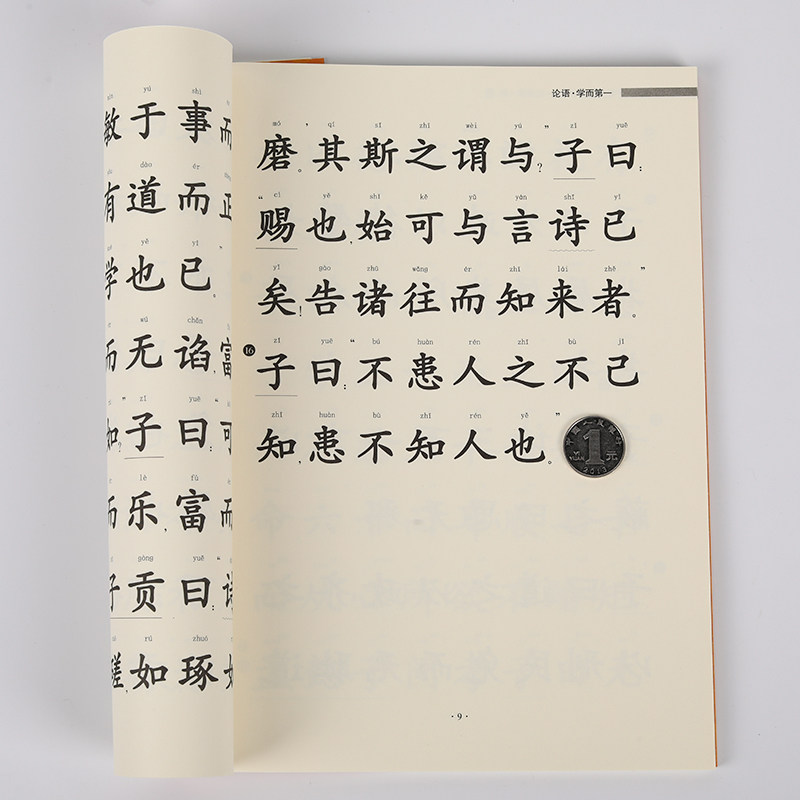 yú shì
敏于事而
dào ér
有道而正
yě yǐ
学也已。”
wú chǎn
而无谄,富
zǐ yuē
如?”子曰:“可
lè fù
而乐,富
gòng yuē
子贡曰:“诗
rú zhuó
磋,如琢如
论语·学而第一
mó qí sī zhī wèi yú zǐ yuē
磨。’其斯之谓与?”子曰:
cì yě shǐ kě yǔ yán shī yǐ
“赐也,始可与言诗已
yǐ gào zhū wǎng ér zhī lái zhě
矣!告诸往而知来者。”
zǐ yuē bú huàn rén zhī bù jǐ
16 子曰:“不患人之不己
zhī huàn bù zhī rén yě
知,患不知人也。”
中国人民银行
1 元
YI YUAN
2013
·9·